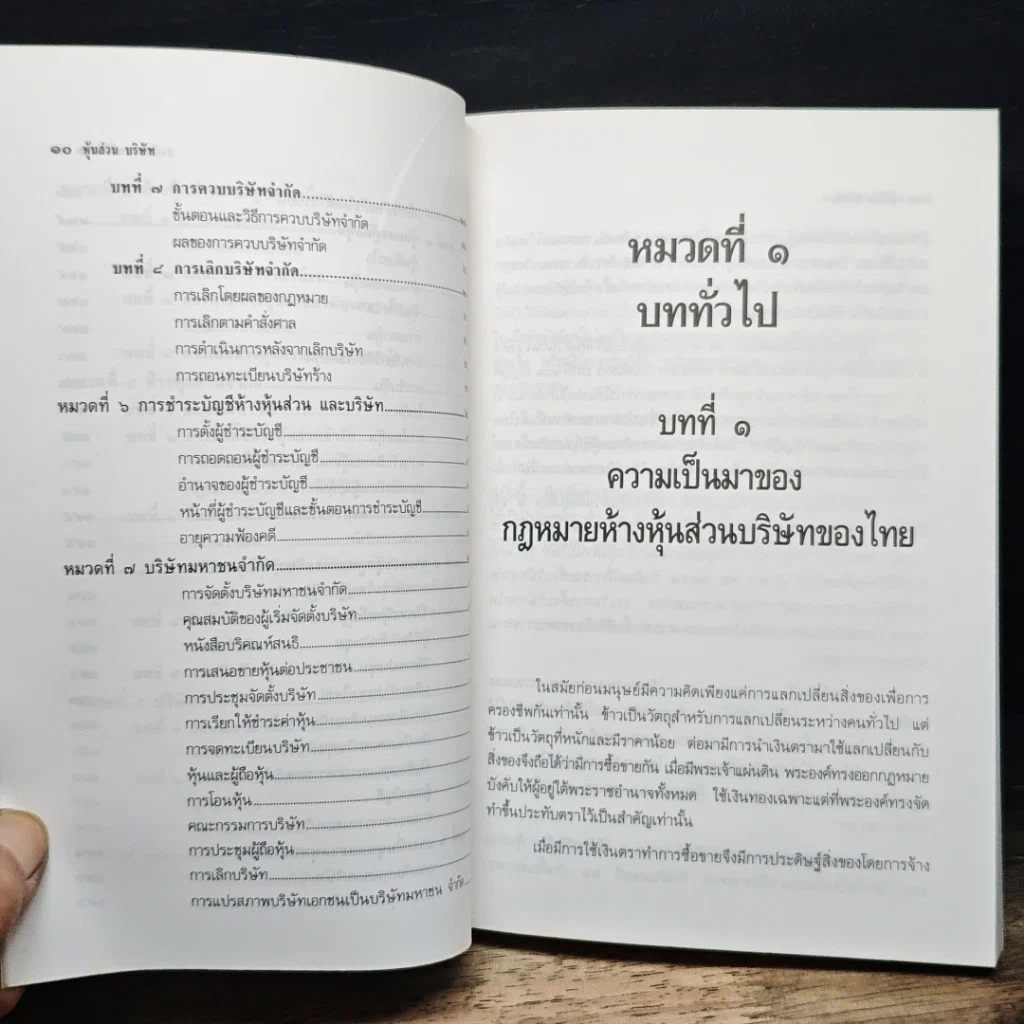 ๑๐ หุ้นส่วน บริษัท
บทที่ ๗ การควบบริษัทจำกัด
ขั้นตอนและวิธีการควบบริษัทจำกัด
ผลของการควบบริษัทจำกัด
บทที่ ๘ การเลิกบริษัทจำกัด
การเลิกโดยผลของกฎหมาย
การเลิกตามคำสั่งศาล
การดำเนินการหลังจากเลิกบริษัท
การถอนทะเบียนบริษัทร้าง
หมวดที่ ๖ การชำระบัญชีห้างหุ้นส่วน และบริษัท
การตั้งผู้ชำระบัญชี
การถอดถอนผู้ชำระบัญชี
อำนาจของผู้ชำระบัญชี
หน้าที่ผู้ชำระบัญชีและขั้นตอนการชำระบัญชี
อายุความฟ้องคดี
หมวดที่ ๗ บริษัทมหาชนจำกัด
การจัดตั้งบริษัทมหาชนจำกัด
คุณสมบัติของผู้เริ่มจัดตั้งบริษัท
หนังสือบริคณห์สนธิ
การเสนอขายหุ้นต่อประชาชน
การประชุมจัดตั้งบริษัท
การเรียกให้ชำระค่าหุ้น
การจดทะเบียนบริษัท
หุ้นและผู้ถือหุ้น
การโอนหุ้น
คณะกรรมการบริษัท
การประชุมผู้ถือหุ้น
การเลิกบริษัท
การแปรสภาพบริษัทเอกชนเป็นบริษัทมหาชน จำกัด
หมวดที่ ๑
บททั่วไป
บทที่ ๑
ความเป็นมาของ
กฎหมายห้างหุ้นส่วนบริษัทของไทย
ในสมัยก่อนมนุษย์มีความคิดเพียงแค่การแลกเปลี่ยนสิ่งของเพื่อการ
ครองชีพกันเท่านั้น ข้าวเป็นวัตถุสำหรับการแลกเปลี่ยนระหว่างคนทั่วไป แต่
ข้าวเป็นวัตถุที่หนักและมีราคาน้อย ต่อมามีการนำเงินตรามาใช้แลกเปลี่ยนกับ
สิ่งของจึงถือได้ว่ามีการซื้อขายกัน เมื่อมีพระเจ้าแผ่นดิน พระองค์ทรงออกกฎหมาย
บังคับให้ผู้อยู่ใต้พระราชอำนาจทั้งหมด ใช้เงินทองเฉพาะแต่ที่พระองค์ทรงจัด
ทำขึ้นประทับตราไว้เป็นสำคัญเท่านั้น
เมื่อมีการใช้เงินตราทำการซื้อขายจึงมีการประดิษฐ์สิ่งของโดยการจ้าง